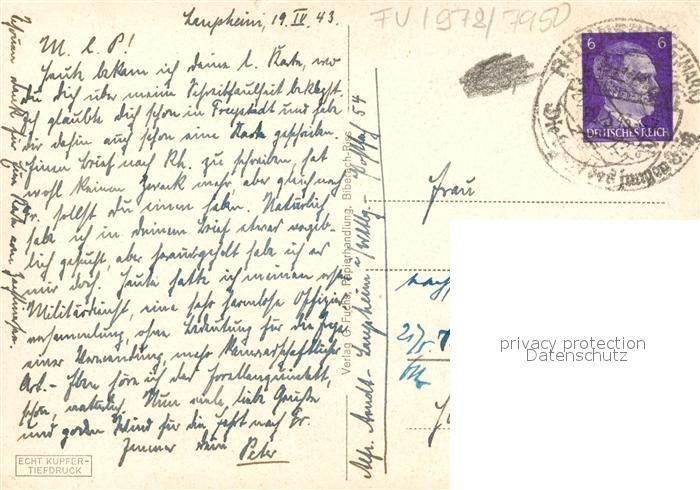 Laupheim, 19. IV. 43.
M. l. P!
Heute bekam ich deine l. Karte, wo
du dich über meine Schreibfaulheit beklagst.
Ich glaubte dich schon in Freystadt und habe
dir dahin auch schon eine Karte geschrieben.
Einen Brief nach Rh. zu schreiben, hat
wohl keinen Zweck mehr, aber gleich nach
Fr. sollst du einen haben. Natürlich
habe ich in deinem Brief etwas vergeb-
lich gesucht, aber herausgefühlt habe ich es
mir doch. Heute hatte ich meinen ersten
Militärdienst, eine sehr harmlose Offizier-
versammlung, ohne Bedeutung für die Frage
einer Verwendung, mehr kameradschaftlicher
Art. - Eben höre ich das Forellenquintett,
schön, natürlich. Nun viele, liebe Grüße
und guten Wind für die Fahrt nach Fr.
Immer dein Peter
Schönen Dank für die Karte vom
ECHT KUPFER-
TIEFDRUCK
Verlag G. Fuchs, Papierhandlung, Biberach-Riss
Laupheim / Wttbg. Postfach 54
FU 1972/7950
6 6
DEUTSCHES REICH
Frau
privacy protection
Datenschutz